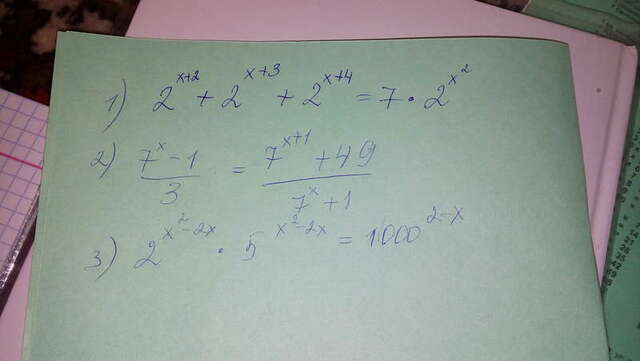 1) 2^{x+2} + 2^{x+3} + 2^{x+4} = 7 · 2^{x^2}
2) \frac{7^x - 1}{3} = \frac{7^{x+1} + 49}{7^x + 1}
3) 2^{x^2-2x} · 5^{x^2-2x} = 1000^{2-x}